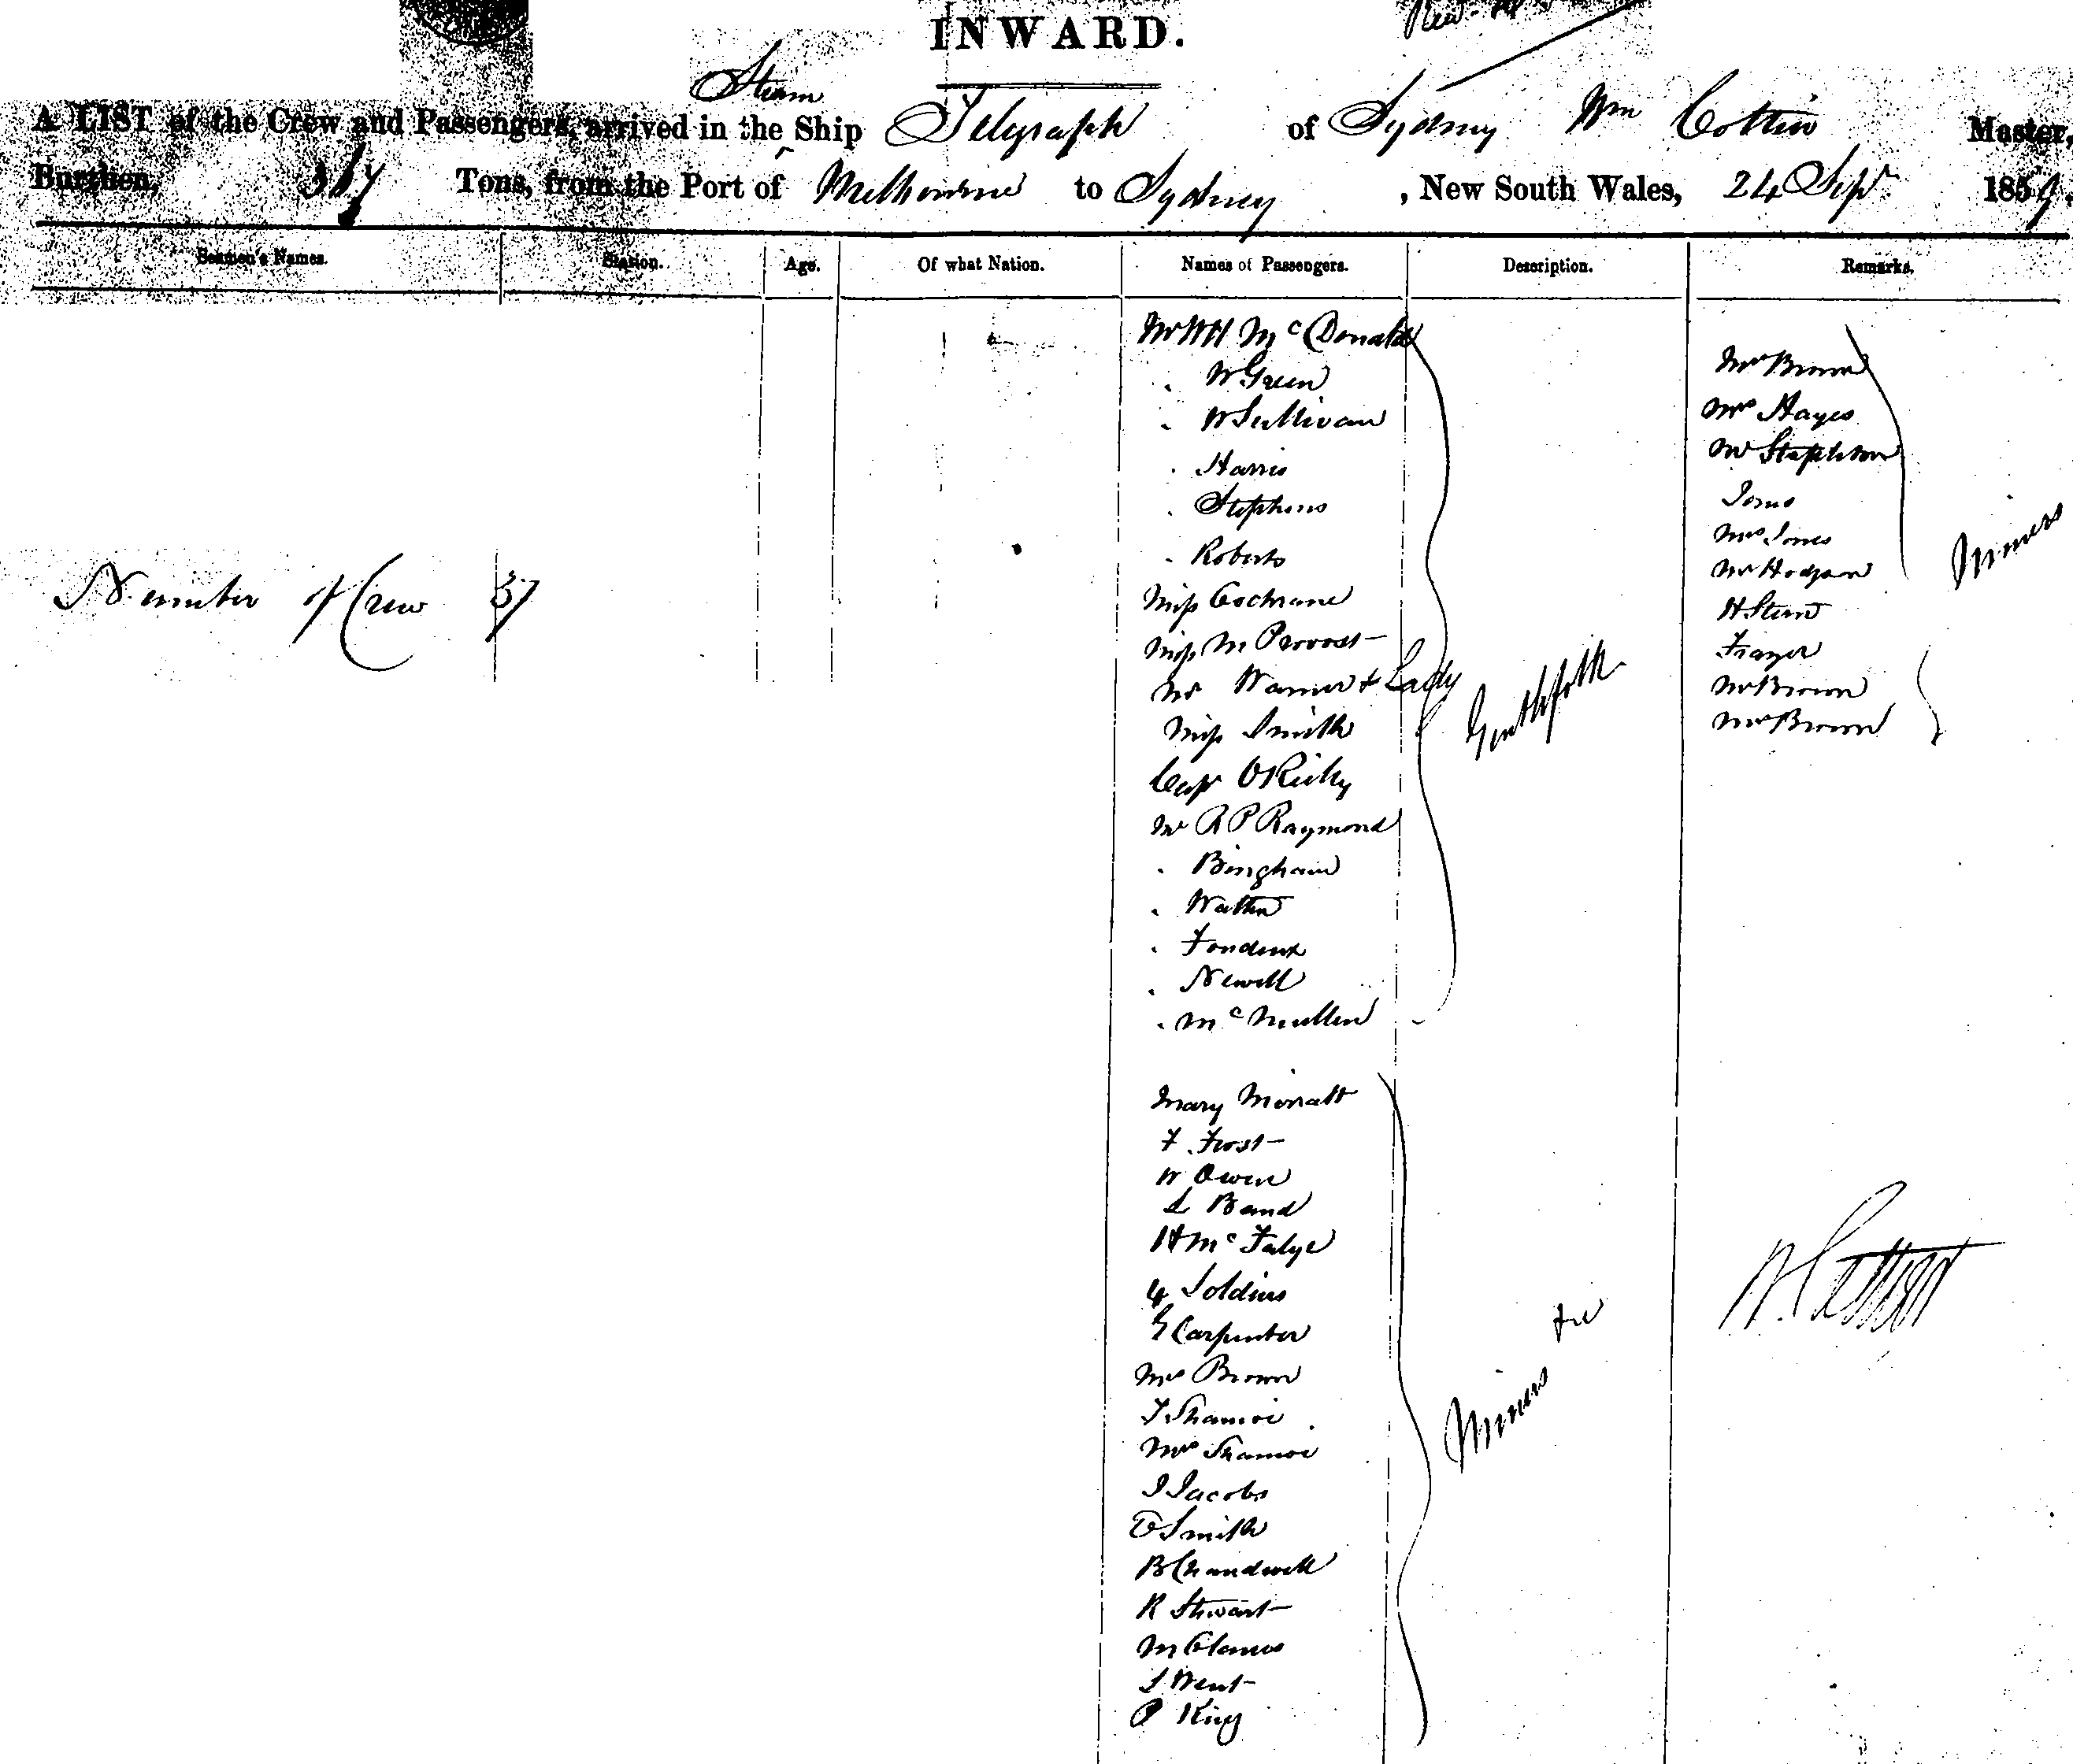 INWARD.
Steam
A LIST of the Crew and Passengers, arrived in the Ship Telegraph of Sydney Wm Cottier Master,
Burthen, 367 Tons, from the Port of Melbourne to Sydney , New South Wales, 24 Sepr 1859.
Seamen's Names. Station. Age. Of what Nation. Names of Passengers. Description. Remarks.
Number of Crew 37
Mr WH McDonald
" W Green
" W Sullivan
" Harris
" Stephens
" Roberts
Miss Cochrane
Miss M Provost
Mr Warner & Lady
Miss Smith
Capt
Mr R P Raymond
" Bingham
" Watkin
"
" Newell
" McMullen
Gentlefolk
Mary
F. Frost
W Owen
L Band
H Mc
4 Soldiers
G Carpenter
Mrs Brown
T
Mrs
I Jacobs
E Smith
B
R Stewart
M
S Went
P King
Miners &c
Mr Brown
Mrs Hayes
Mr Stapleton
Jones
Mrs Jones
Mr Hodgson
H Stern
Frazer
Mr Brown
Mrs Brown
Miners